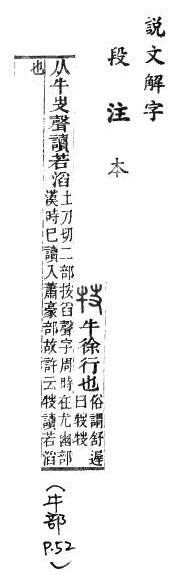 說文解字
段注本
𤘘牛徐行也俗謂舒遲
曰𤘘𤘘
从牛𠬢聲讀若滔土刀切二部按舀聲字周時在尤幽部
漢時已讀入蕭豪部故許云𤘘讀若滔
也
(牛部
P.52)